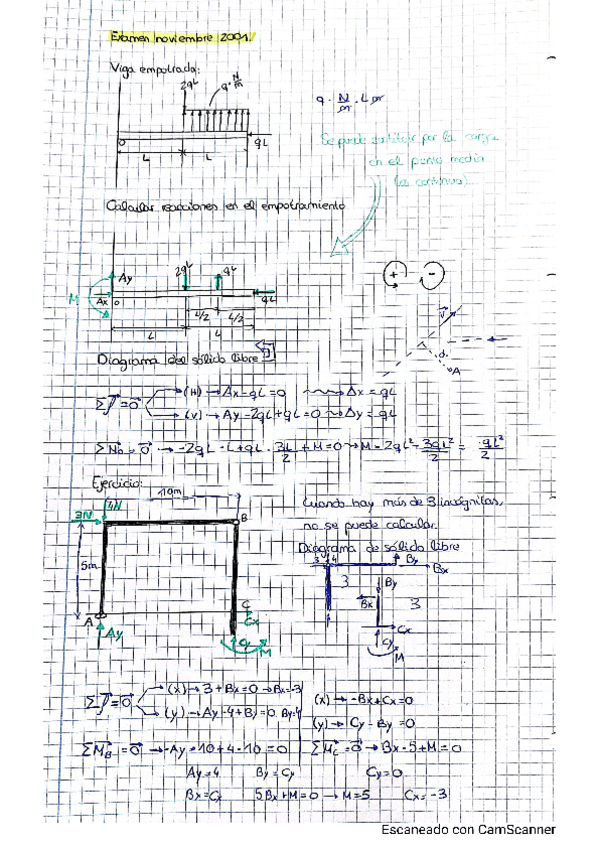 Examen noviembre 2001/
Viga empotrada:
2qL
q · N/m
q · N/m · L m
Se puede sustituir por la carga
en el punto medio
(es continua)
O
qL
L
L
Calcular reacciones en el empotramiento
Ay
2qL
qL
+
-
M
Ax
O
qL
L/2
L/2
L
L
V
d
A
Diagrama del sólido libre
Σf = 0 (H) → Ax - qL = 0 Ax = qL
(V) → Ay - 2qL + qL = 0 Ay = qL
ΣMo = 0 → -2qL · L + qL · 3L/2 + M = 0 M = 2qL² - 3qL²/2 = qL²/2
Ejercicio:
10m
Cuando hay más de 3 incógnitas,
no se puede calcular.
Diagrama de sólido libre
3N
4N
B
3
4
By
Bx
5m
3
By
Bx
3
A
C
Cx
Cx
Ay
Cy
M
Cy
M
Σf = 0 (x) → 3 + Bx = 0 → Bx = -3
(y) → Ay - 4 + By = 0 By=4
(x) → -Bx + Cx = 0
(y) → Cy - By = 0
ΣMB = 0 → -Ay · 10 + 4 · 10 = 0
ΣMc = 0 → Bx · 5 + M = 0
Ay = 4 By = Cy Cy = 0
Bx = Cx 5Bx + M = 0 → M = 5 Cx = -3
Escaneado con CamScanner